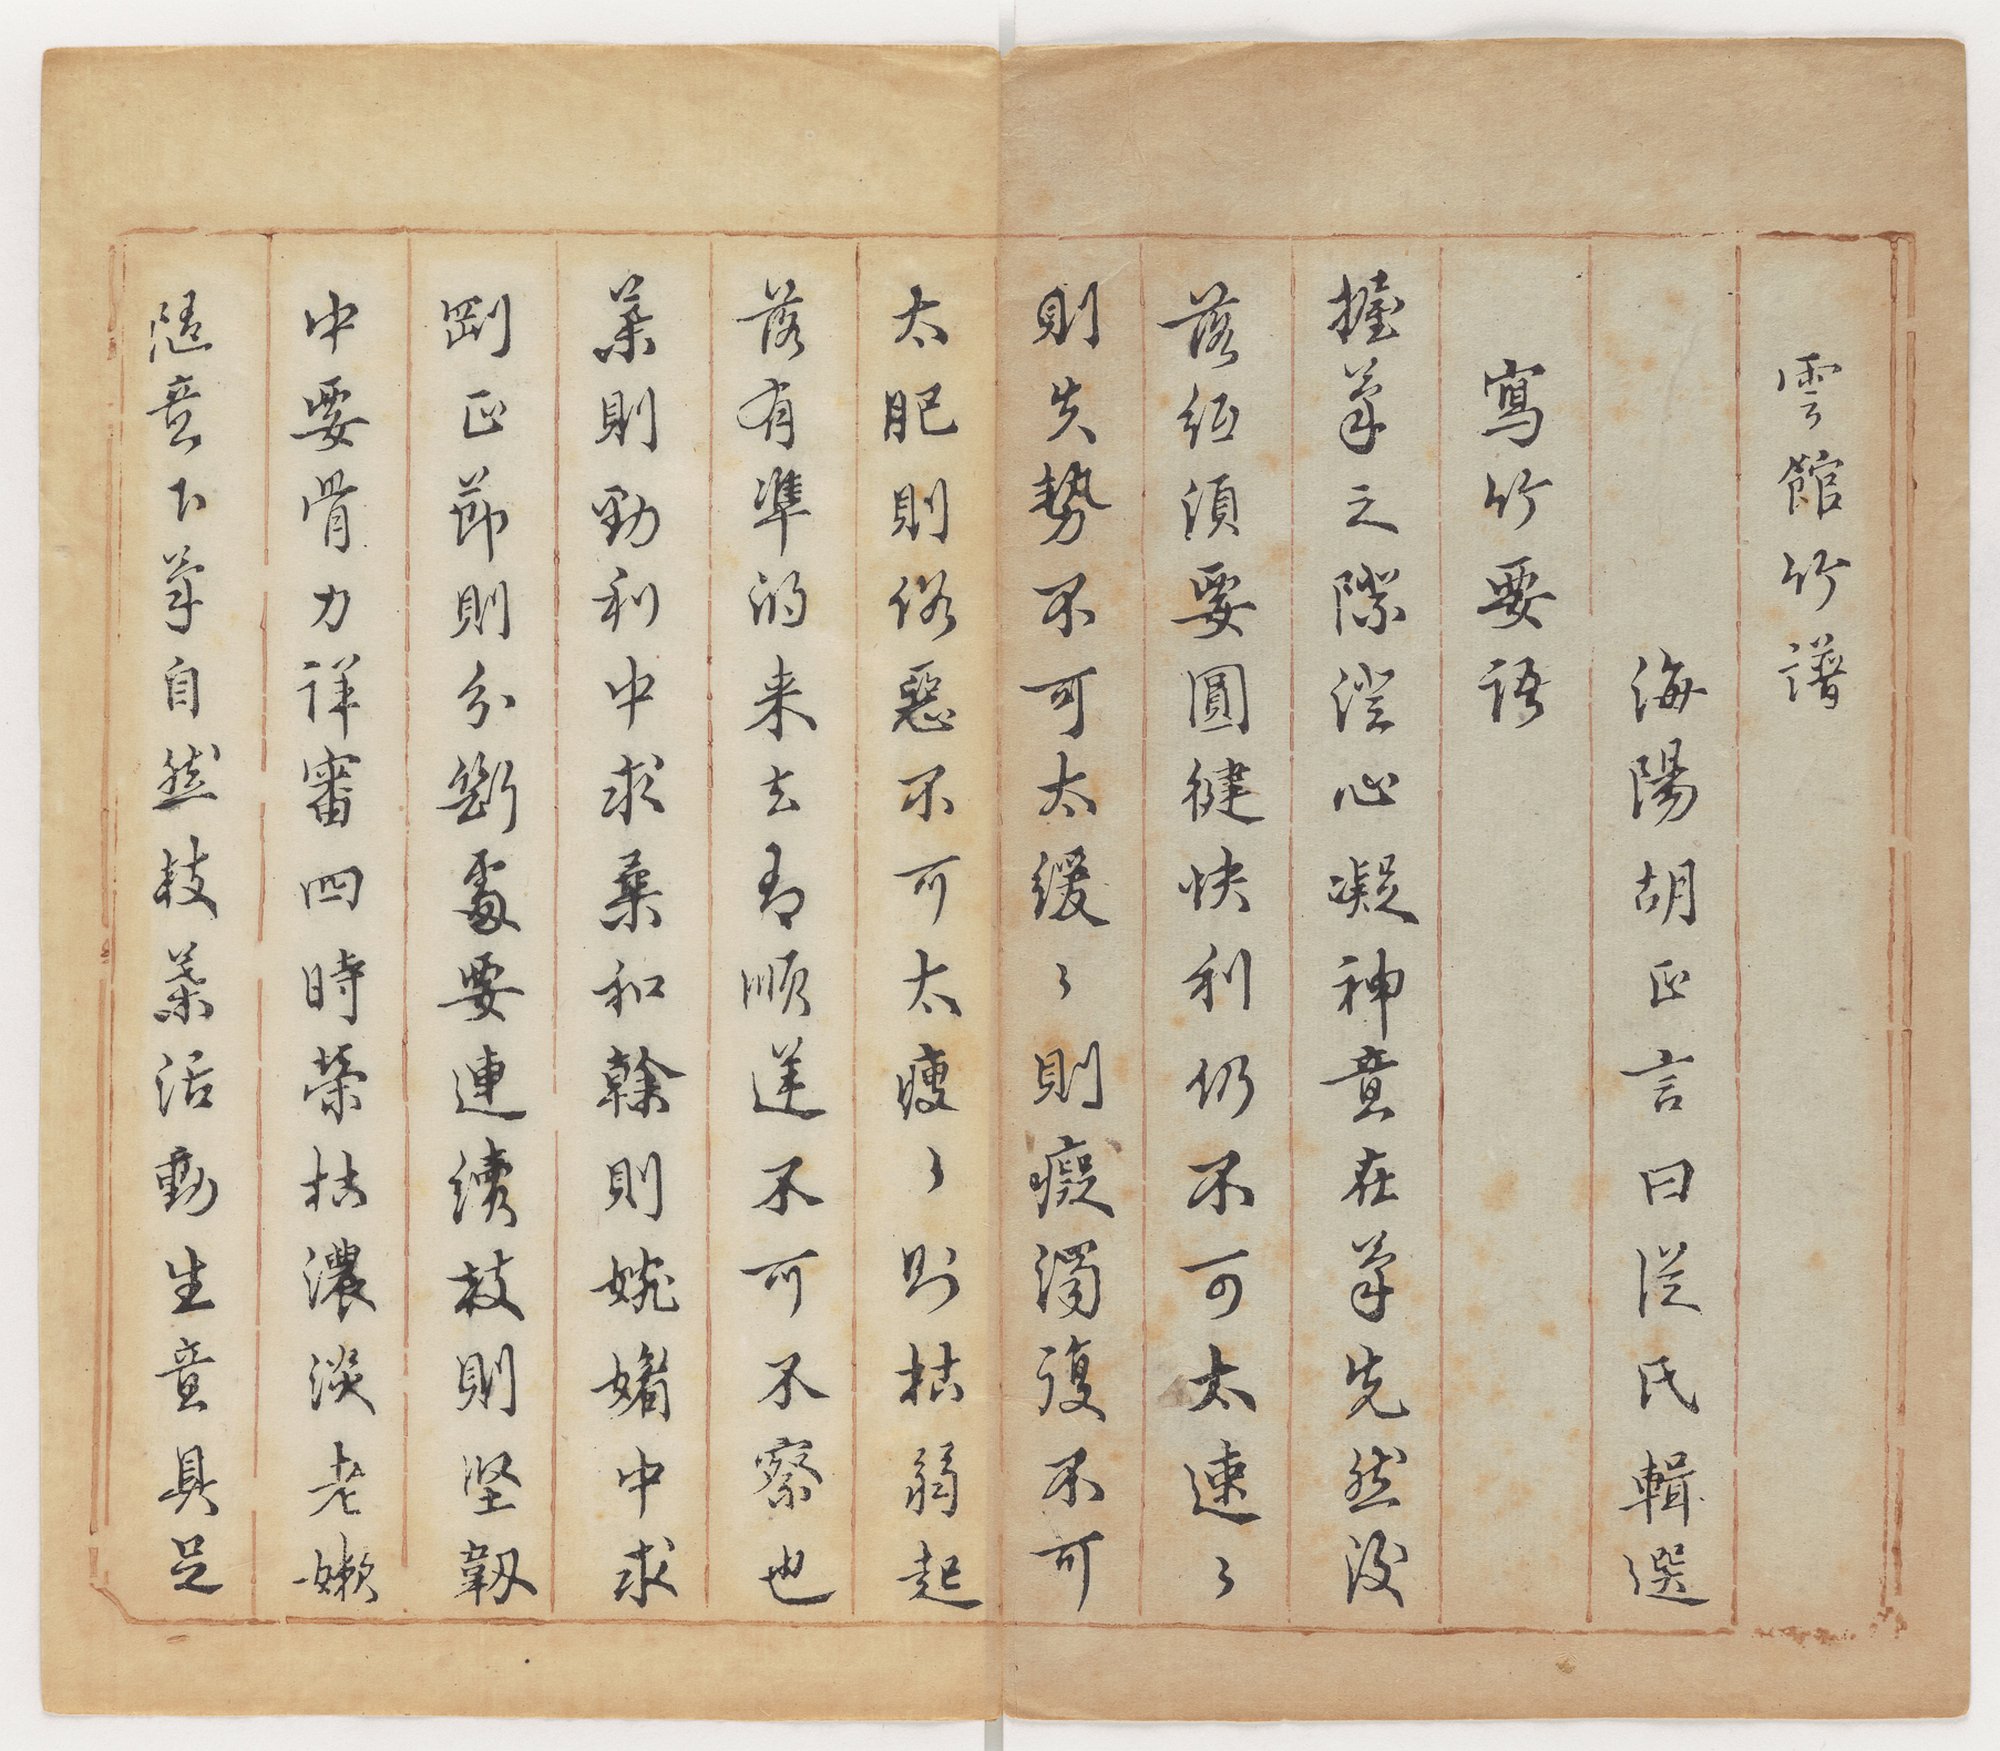 雲館竹譜
海陽胡正言曰從氏輯選
寫竹要語
握筆之際澄心凝神意在筆先然後
落紙須要圓健快利仍不可太速〻
則失勢不可太緩〻則癡濁復不可
太肥則俗惡不可太瘦〻則枯弱起
落有準的来去有順逆不可不察也
葉則勁利中求葉和幹則婉媚中求
剛正節則分斷處要連續枝則堅韌
中要骨力詳審四時榮枯濃淡老嫩
隨意下筆自然枝葉活動生意具足